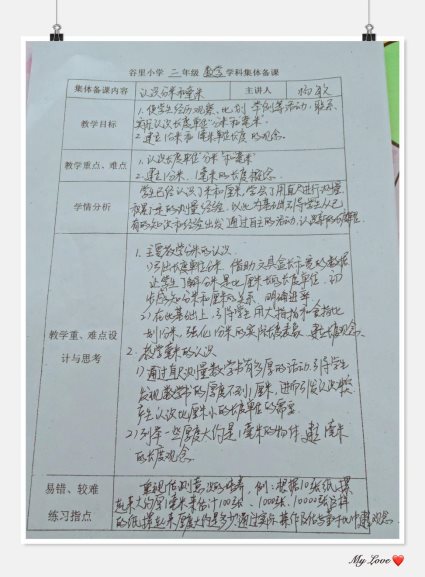 谷里小学 二 年级 数学 学科集体备课
集体备课内容 认识分米和毫米 主讲人
教学目标
1. 使学生经历观察、比划、举例等活动,联系
实际认识长度单位分米和毫米
2. 建立1分米和1毫米单位长度的观念。
教学重点、难点
1. 认识长度单位分米和毫米
2. 建立1分米、1毫米的长度概念。
学情分析
学生已经认识了米和厘米,学会了用直尺进行测量
积累了一定的测量经验,以此为基础引导学生从已
有的知识和经验出发 通过自主的活动,认识
教学重、难点设
计与思考
1. 主要教学分米的认识
1) 引出长度单位分米,借助文具盒长度的数据
让学生了解分米是比厘米大的长度单位,初
步感知分米和厘米的关系,明确进率
2) 在此基础上,引导学生用大拇指和食指比
划1分米,强化1分米的实际长度表象,建立观念。
2. 教学毫米的认识
1) 通过直尺测量数学书有多厚的活动,引导学生
发现数学书的厚度不到1厘米,进而引发认知冲突
产生认识比厘米小的长度单位的需要
2) 列举一些厚度大约是1毫米的物体,建立1毫米
的长度观念。
易错、较难
练习指点
重视估测意识的培养,例:根据10张纸摞
起来大约厚1毫米来估计100张、1000张、10000张这样
的纸摞起来厚度大约是多少,通过实际操作
My Love